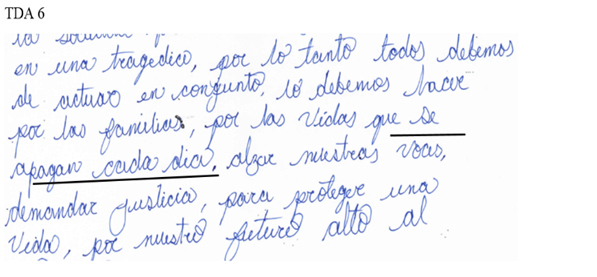 TDA 6
la
en una tragedica, por lo tanto todos debemos
de actuar en conjunto, lo debemos hacer
por las familias, por las vidas que se
apagan cada dia, alzar nuestras voces,
demandar justicia, para proteger una
vida, por nuestro futuro alto al